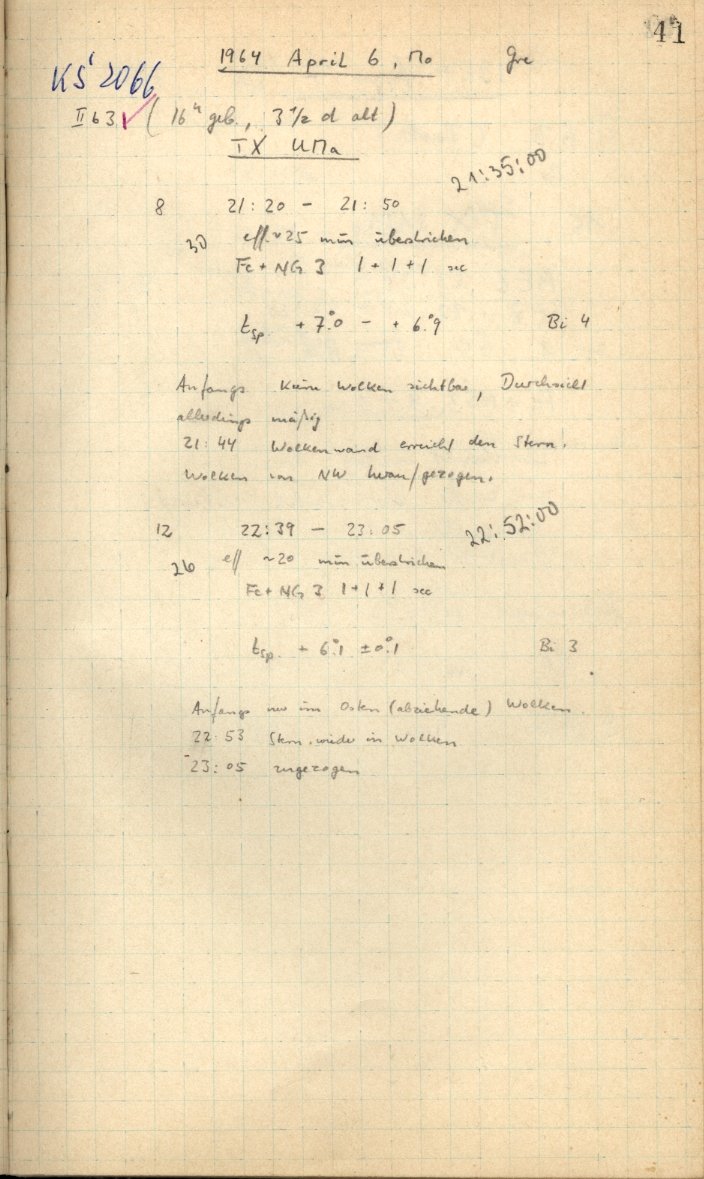 41
1964 April 6, Mo Gre
KŠ 2066
II 631 (16h geb., 3 1/2 d alt)
TX UMa
21:35:00
8 21:20 - 21:50
30 eff. ~25 min überstrichen
Fe + NG 3 1+1+1 sec
tsp. +7°.0 - +6°.9 Bi 4
Anfangs keine Wolken sichtbar, Durchsicht
allerdings mäßig
21:44 Wolkenwand erreicht den Stern.
Wolken von NW heraufgezogen.
22:52:00
12 22:39 - 23:05
26 eff ~20 min überstrichen
Fe + NG 3 1+1+1 sec
tsp. +6°.1 ±0°.1 Bi 3
Anfangs nur im Osten (abziehende) Wolken.
22:53 Stern wieder in Wolken
23:05 zugezogen